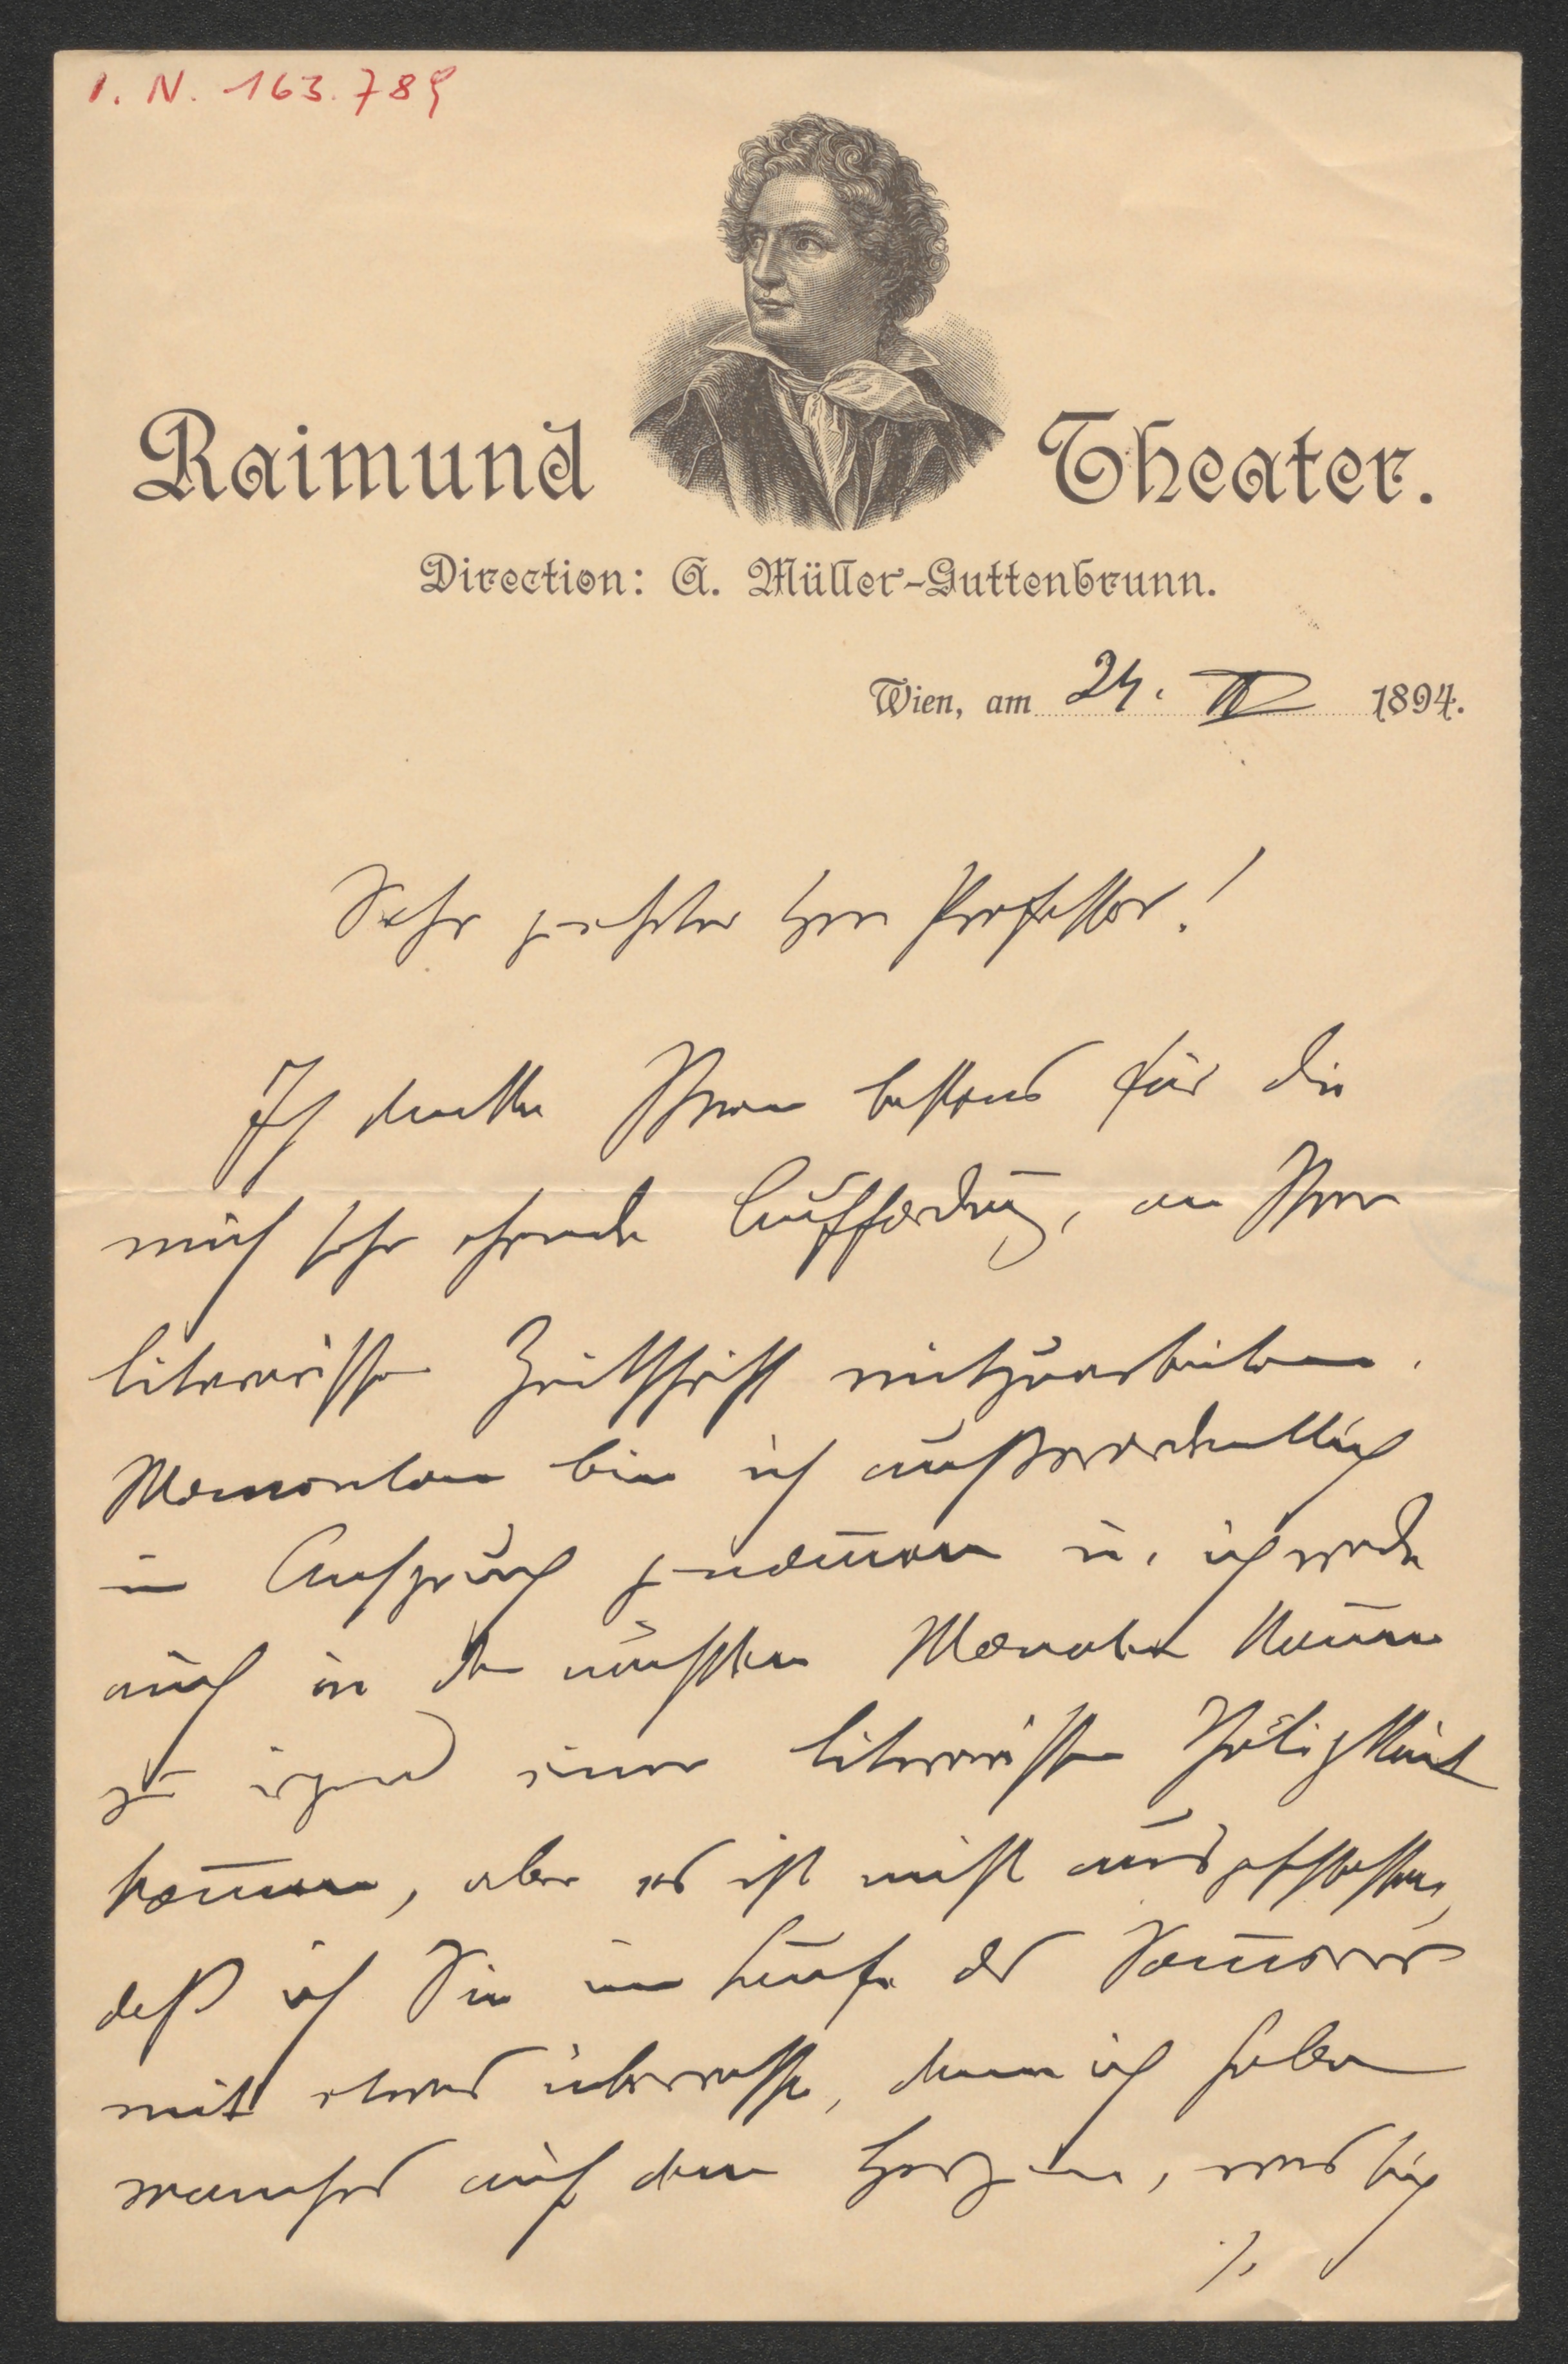 I. N. 163.789
Raimund Theater.
Direction: A. Müller-Guttenbrunn.
Wien, am 24. 1894.
Sehr geehrter Herr Professor!
Ich danke Ihnen bestens für die
mich sehr ehrende Aufforderung, an Ihrer
literarischen Zeitschrift mitzuarbeiten.
Momentan bin ich außerordentlich
in Anspruch genom̅en u. ich werde
auch in den nächsten Monaten kaum
zu irgend einer literarischen Thätigkeit
kom̅en, aber es ist nicht ausgeschlossen,
daß ich Sie im Laufe des Som̅ers
mit etwas überrasche, denn ich habe
manches auf dem Herzen, was sich
./.